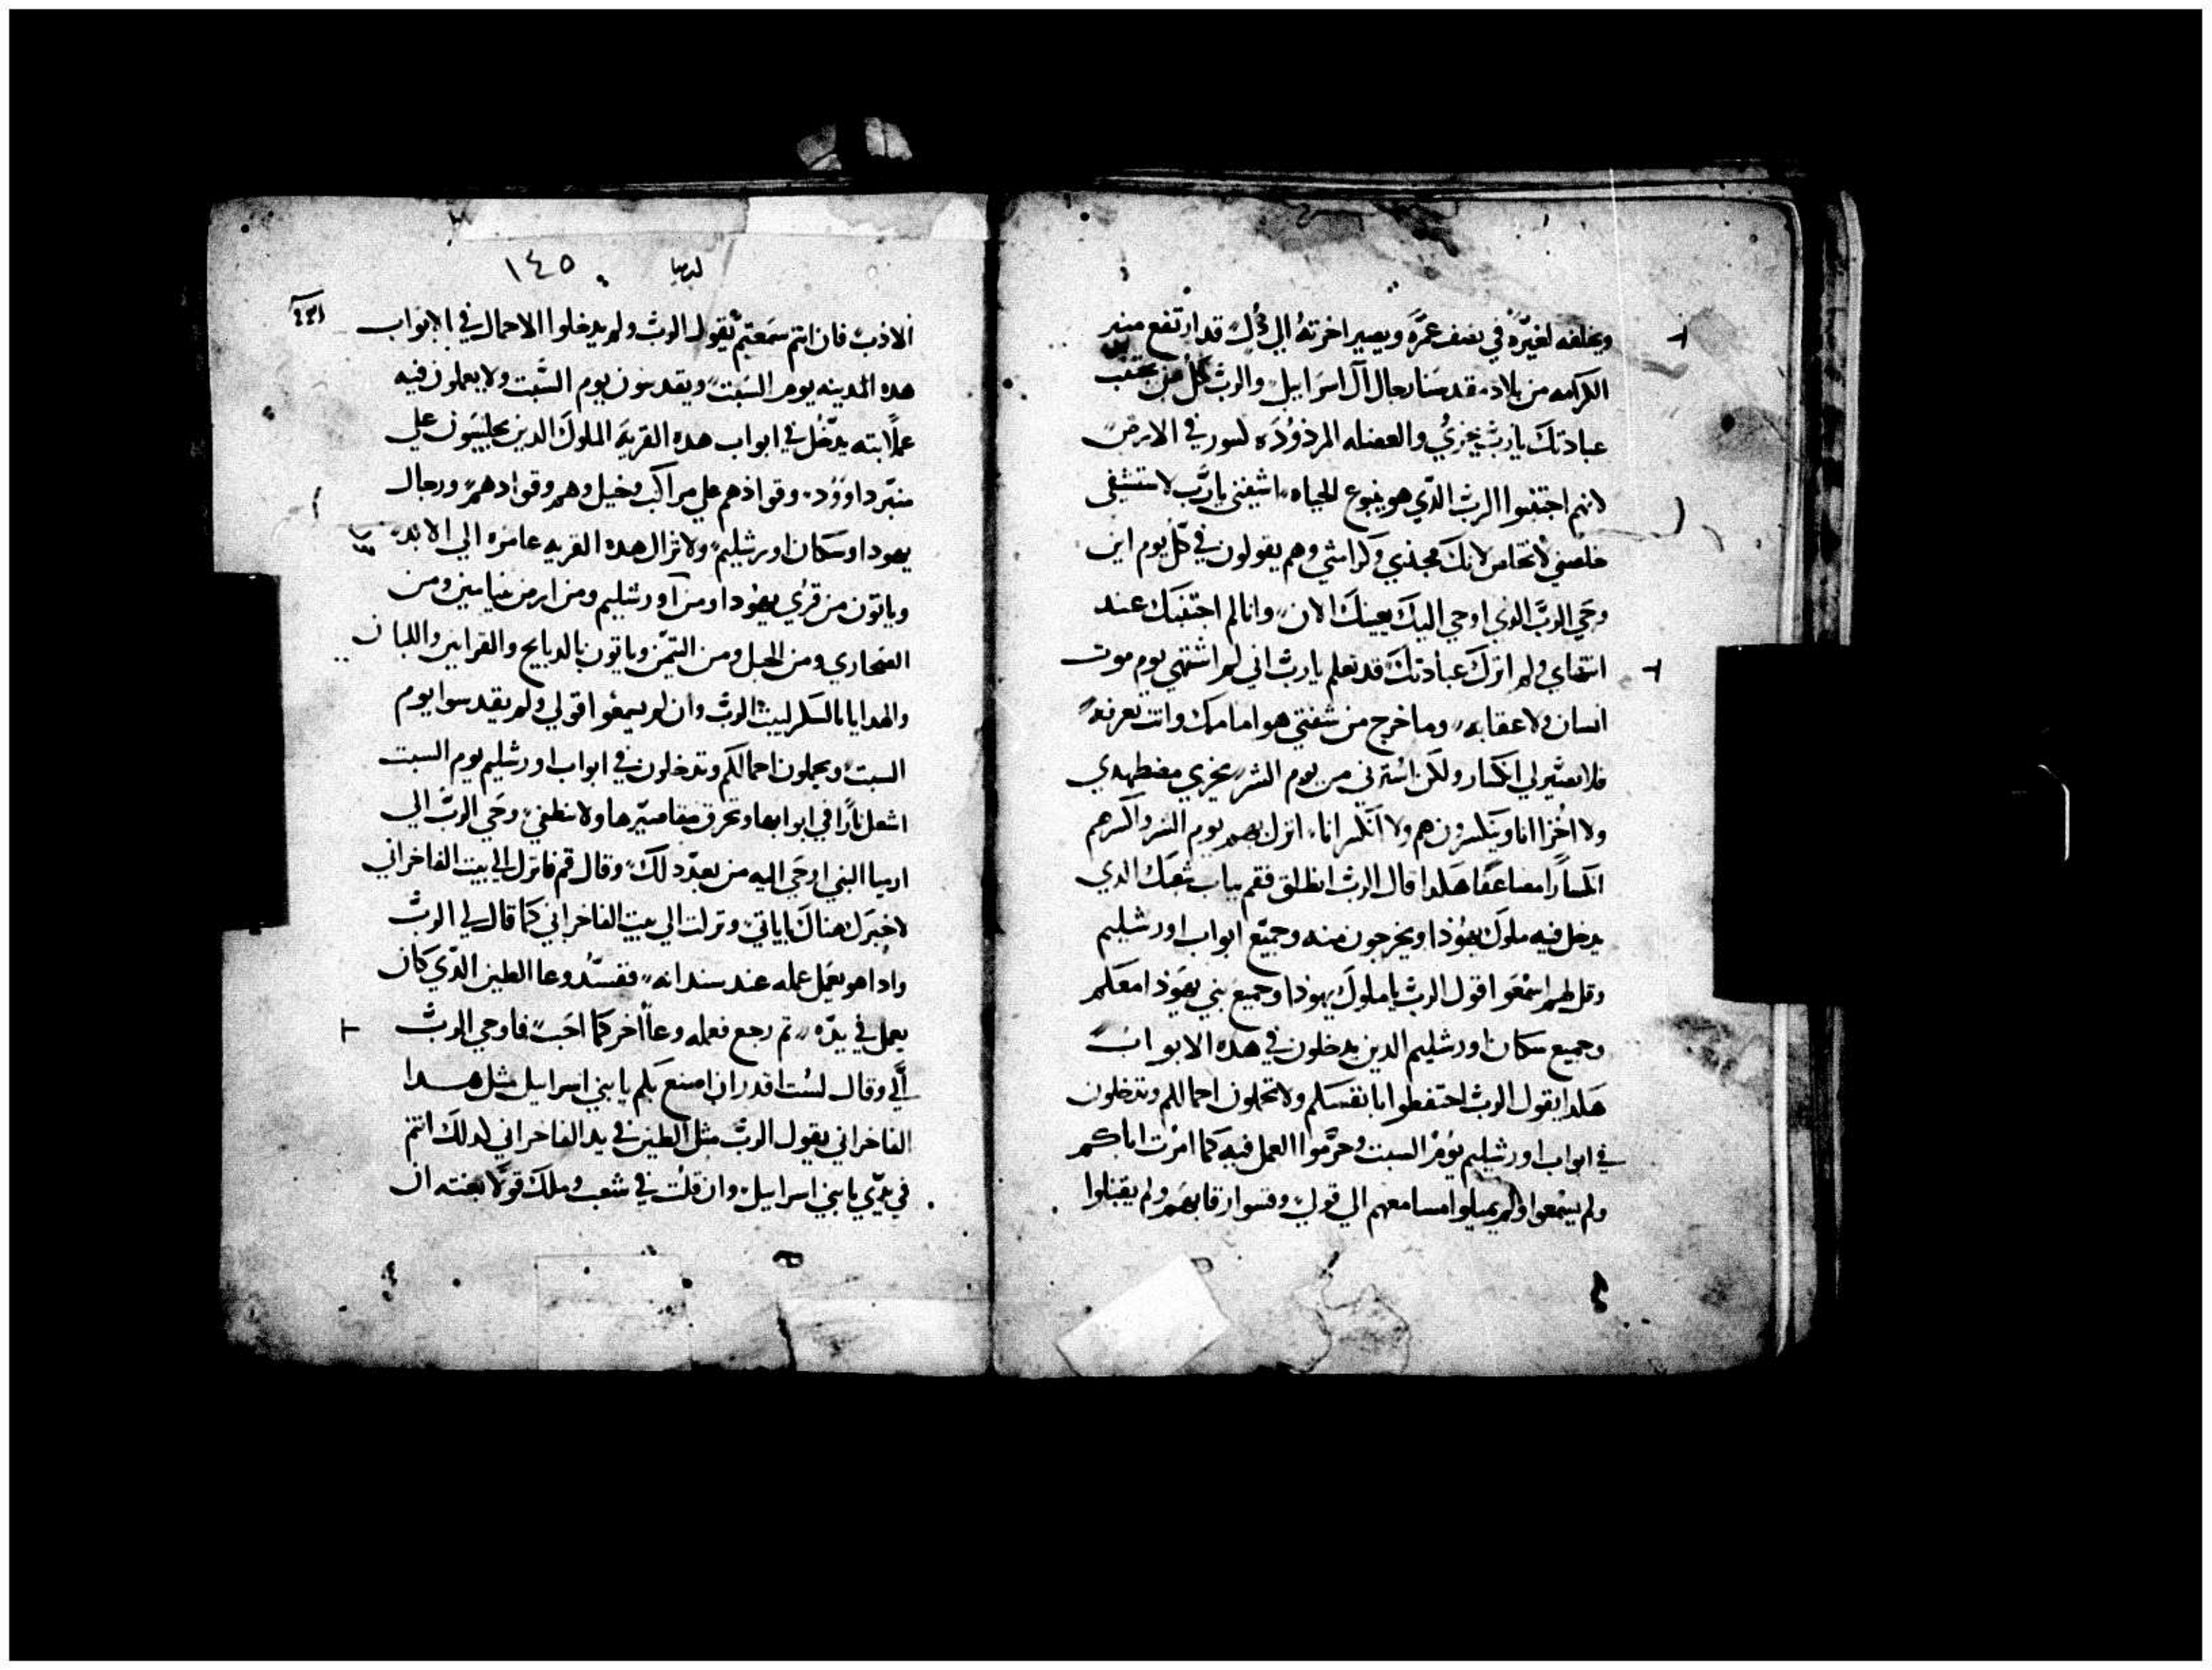 ويخلفه لغيره في نصف عمره ويصير اخرته الي ذل قد ارتفع منبر
الكرامه من بلاد مقدسنا رجال آل اسراييل والرب كل من يجتنب
عبادتك يارب يخزي والعضله المردوده لسور في الارض
لانهم اجتنبوا الرب الذي هو ينبوع الحياه اشفني يارب لاستشفى
خلصني لاتخلص لانك مجدي وكرامتي وهم يقولون في كل يوم اين
وحي الرب الذي اوحي اليك بعينك الان وانا لم اجتنبك عند
انتقاي ولم اترك عبادتك قد تعلم يارب اني لم اشتهي يوم موت
انسان ولا عقابه وما خرج من شفتي هو امامك وانت تعرفه
فلا تصير لي انكسار ولكن استرني من يوم الشر يخزي مضطهدي
ولا اخزا انا وينكسرون هم ولا انكسر انا انزل بهم يوم الشر واكسرهم
انكسارا مضاعفا هكدا قال الرب انطلق فقم بباب شعبك الدي
يدخل فيه ملوك يهودا ويخرجون منه وجميع ابواب اورشليم
وقل لهم اسمعوا قول الرب ياملوك يهودا وجميع بني يهودا معكم
وجميع سكان اورشليم الدين يدخلون في هده الابواب
هكدا يقول الرب احتفطوا بانفسكم ولا تحملون احمالكم وتدخلون
في ابواب اورشليم يوم السبت وحرموا العمل فيه كما امرت اباكم
ولم يسمعوا ولم يميلوا مسامعهم الي قولي وقسوا رقابهم ولم يقبلوا
ارميا ١٤٥
الادب فان انتم سمعتم يقول الرب ولم يدخلوا الاحمال في الابواب
هده المدينه يوم السبت ويقدسون يوم السبت ولا يعملون فيه
عملا بته يدخل في ابواب هده القريه الملوك الدين يجلسون علي
منبر داوود وقوادهم علي مراكب وخيل وهم وقوادهم ورجال
يهودا وسكان اورشليم ولا تزال هده القريه عامره الي الابد
وياتون من قري يهودا ومن اورشليم ومن ارض بنيامين ومن
الصحاري ومن الجبل ومن التيمن وياتون بالدبايح والقرابين واللبان
والهدايا بالسكر لبيت الرب وان لم يسمعوا قولي ولم يقدسوا يوم
السبت ويحملون احمالكم وتدخلون في ابواب اورشليم يوم السبت
اشعل نارا في ابوابها وتحرق مقاصيرها ولا تطفي وحي الرب الي
ارميا النبي اوحي اليه من بعد دلك وقال قم فانزل الي بيت الفاخراني
لاخبرك هناك باياتي ونزلت الي بيت الفاخراني كما قال لي الرب
وادا هو يعمل عمله عند سندانه ففسد وعا الطين الدي كان
يعمل في يده تم رجع فعمله وعا اخر كما احب فاوحي الرب
الي وقال لست اقدر ان اصنع بكم يابني اسراييل مثل هدا
الفاخراني يقول الرب مثل الطين في يد الفاخراني كدلك انتم
في يدي يا بني اسراييل وان قلت في شعب وملك قولا بغته ان